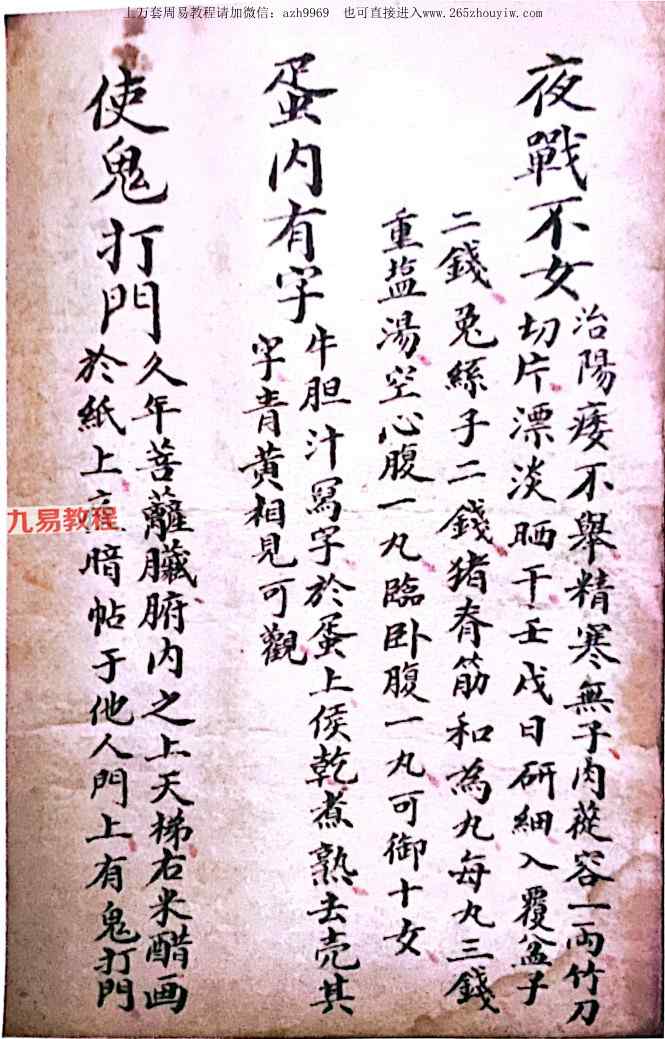 上万套周易教程请加微信：azh9969 也可直接进入www.265zhouyiw.com
夜戰不女
治陽痿不舉精寒無子肉蓯容一両竹刀
切片漂淡晒干壬戌日研細入覆盆子
二錢兔絲子二錢猪脊筋和為丸每丸三錢
重盐湯空心腹一丸臨卧腹一丸可御十女
蛋内有字
牛胆汁寫字於蛋上候乾煮熟去壳其
字青黄相見可觀
使鬼打門
久年菩薩臟腑内之上天梯右米醋画
於紙上暗帖于他人門上有鬼打門
九易教程